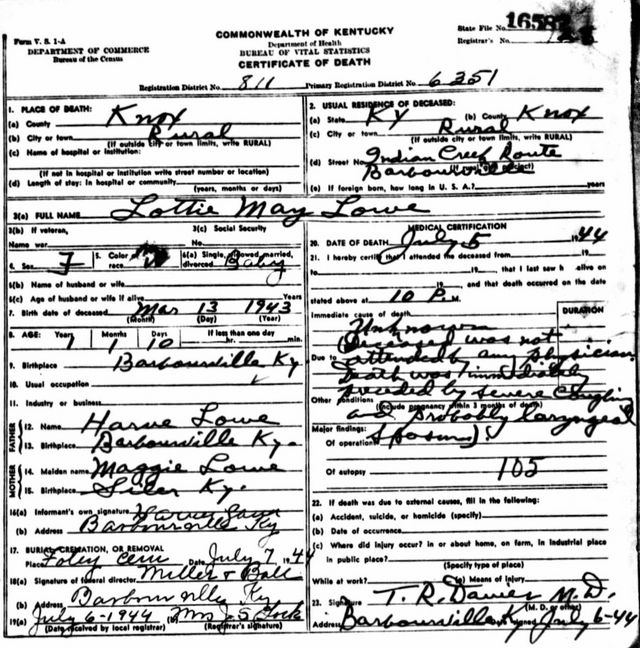 Form V. S. 1-A
DEPARTMENT OF COMMERCE
Bureau of the Census
COMMONWEALTH OF KENTUCKY
Department of Health
BUREAU OF VITAL STATISTICS
CERTIFICATE OF DEATH
State File No. 1658
Registrar's No.
Registration District No. 811 Primary Registration District No. 6351
1. PLACE OF DEATH:
(a) County Knox
(b) City or town Rural
(If outside city or town limits, write RURAL)
(c) Name of hospital or institution:
(If not in hospital or institution write street number or location)
(d) Length of stay: In hospital or community
(years, months or days)
2. USUAL RESIDENCE OF DECEASED:
(a) State Ky (b) County Knox
(c) City or town Rural
(If outside city or town limits, write RURAL)
(d) Street No. Indian Creek Route
Barbourville
(e) If foreign born, how long in U. S. A.? years
3(a) FULL NAME Lottie May Lowe
3(b) If veteran,
Name war
3(c) Social Security
No.
4. Sex F 5. Color or race W 6(a) Single, widowed, married, divorced Baby
6(b) Name of husband or wife
6(c) Age of husband or wife if alive Years
7. Birth date of deceased Mar 13 1943
(Month) (Day) (Year)
8. AGE: Years 1 Months 1 Days 10 If less than one day
hr. min.
9. Birthplace Barbourville Ky
10. Usual occupation
11. Industry or business
FATHER
12. Name Harve Lowe
13. Birthplace Barbourville Ky.
MOTHER
14. Maiden name Maggie Lowe
15. Birthplace Siler Ky.
16(a) Informant's own signature
(b) Address Barbourville Ky
17. BURIAL, CREMATION, OR REMOVAL
Place Foley Cem Date July 7 1944
18(a) Signature of funeral director Miller & Ball
(b) Address Barbourville Ky
19(a) July 6-1944 Mrs J. S.
(Date received by local registrar) (Registrar's signature)
MEDICAL CERTIFICATION
20. DATE OF DEATH July 5 1944
21. I hereby certify that I attended the deceased from 19
to 19 , that I last saw h alive on
19 , and that death occurred on the date
stated above at 10 P. M.
DURATION
Immediate cause of death
Unknown
(Deceased was not
Due to attended by any physician
Death was immediately
preceded by severe coughing
Other conditions
(Include pregnancy within 3 months of death)
and probably laryngeal
Major findings:
Of operations spasms).
Of autopsy 105
22. If death was due to external causes, fill in the following:
(a) Accident, suicide, or homicide (specify)
(b) Date of occurrence
(c) Where did injury occur? in or about home, on farm, in industrial place
in public place?
(Specify type of place)
While at work? (e) Means of injury
23. Signature T. R. Davies M. D.
(M. D. or other)
Address Barbourville Ky Date signed July 6-44